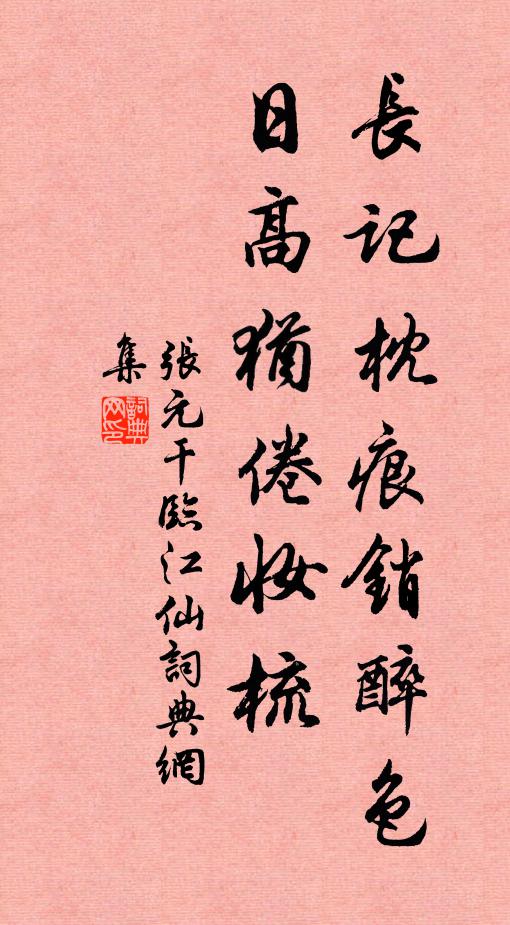 長記枕痕銷醉色
日高猶倦妝梳
張元干臨江仙詞典網
集
詞典網印